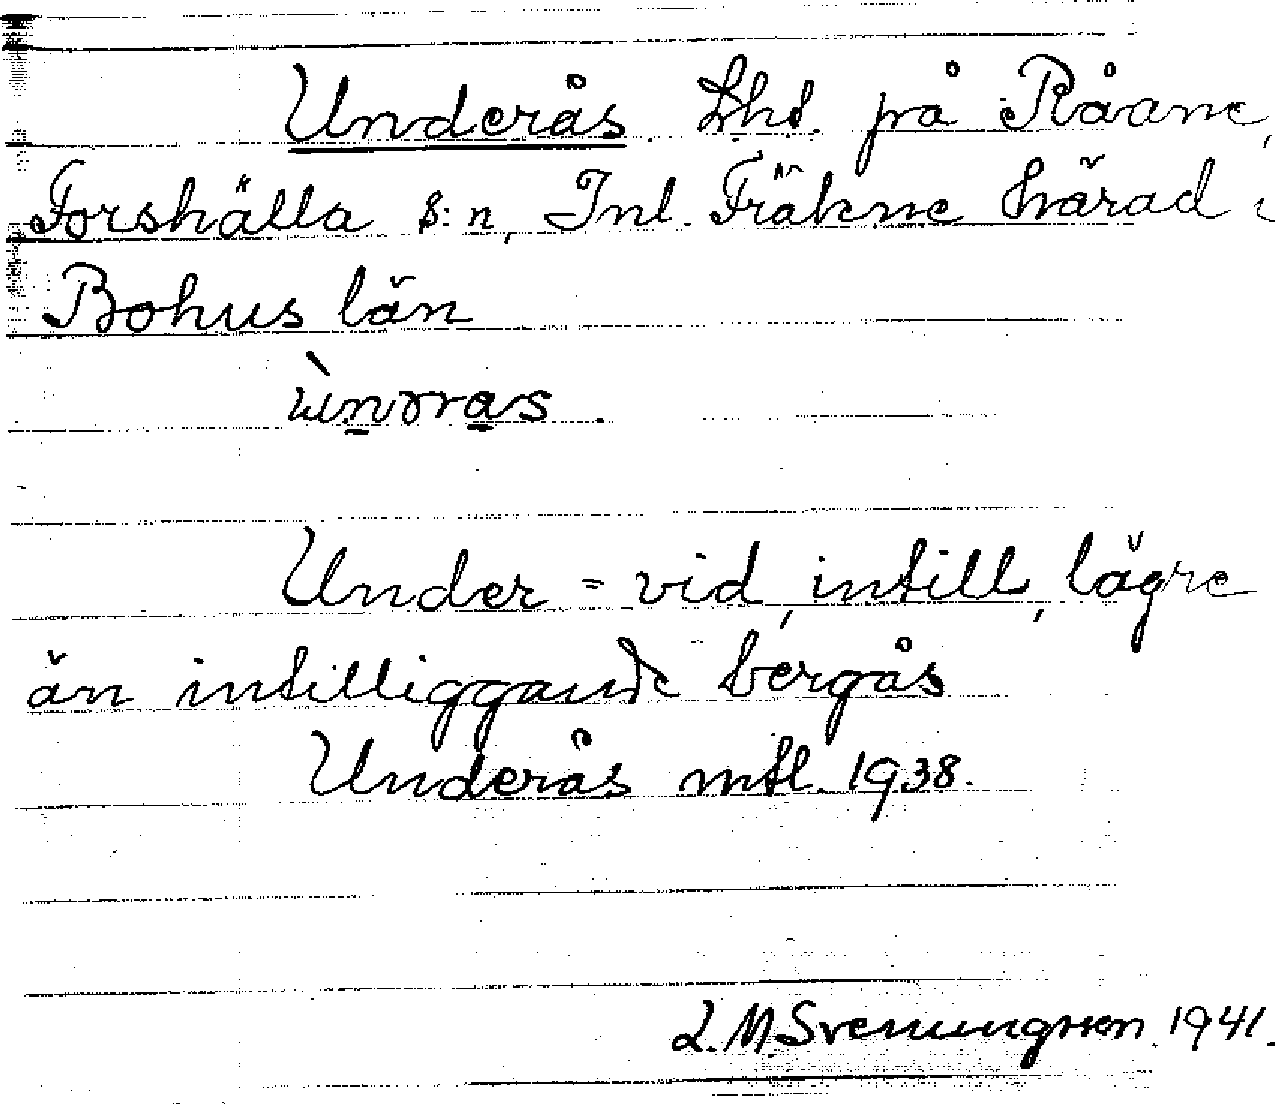 Underås. Lht. på Råane,
Forshälla s:n, Inl. Fräkne härad i
Bohus län
Under = vid, intill, lägre
än intilliggande bergås
Underås mtl. 1938.
L.M. Svenungsson. 1941.